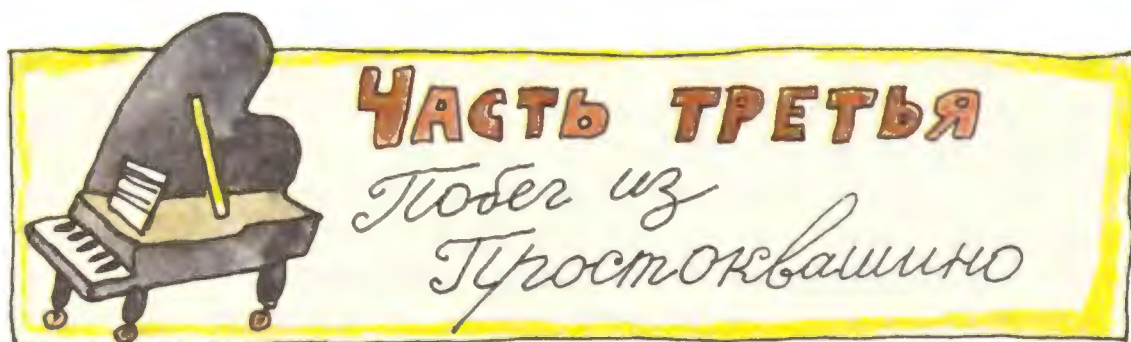 Часть третья
Побег из
Простоквашино